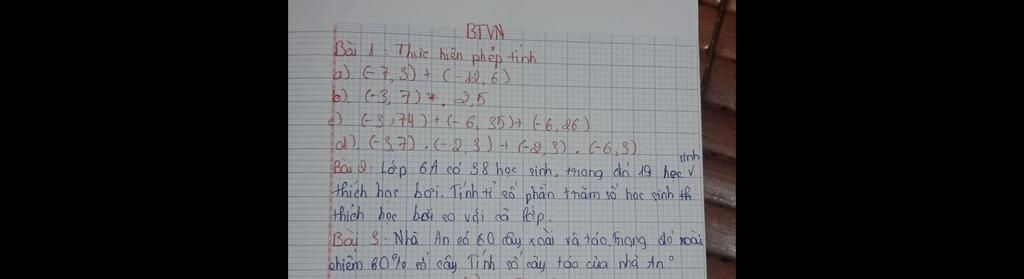 BTVN
Bài 1: Thực hiện phép tính
a) (-7,3) + (-12,6)
b) (-3,7) . 2,5
c) (-3,74) + (-6,35) + (-6,26)
d) (-3,7) . (-2,3) + (-2,3) . (-6,3)
Bài 2: Lớp 6A có 38 học sinh, trong đó 19 học sinh
thích học bơi. Tính tỉ số phần trăm số học sinh
thích học bơi so với cả lớp.
Bài 3: Nhà An có 60 cây xoài và táo, trong đó xoài
chiếm 60% số cây. Tính số cây táo của nhà An?